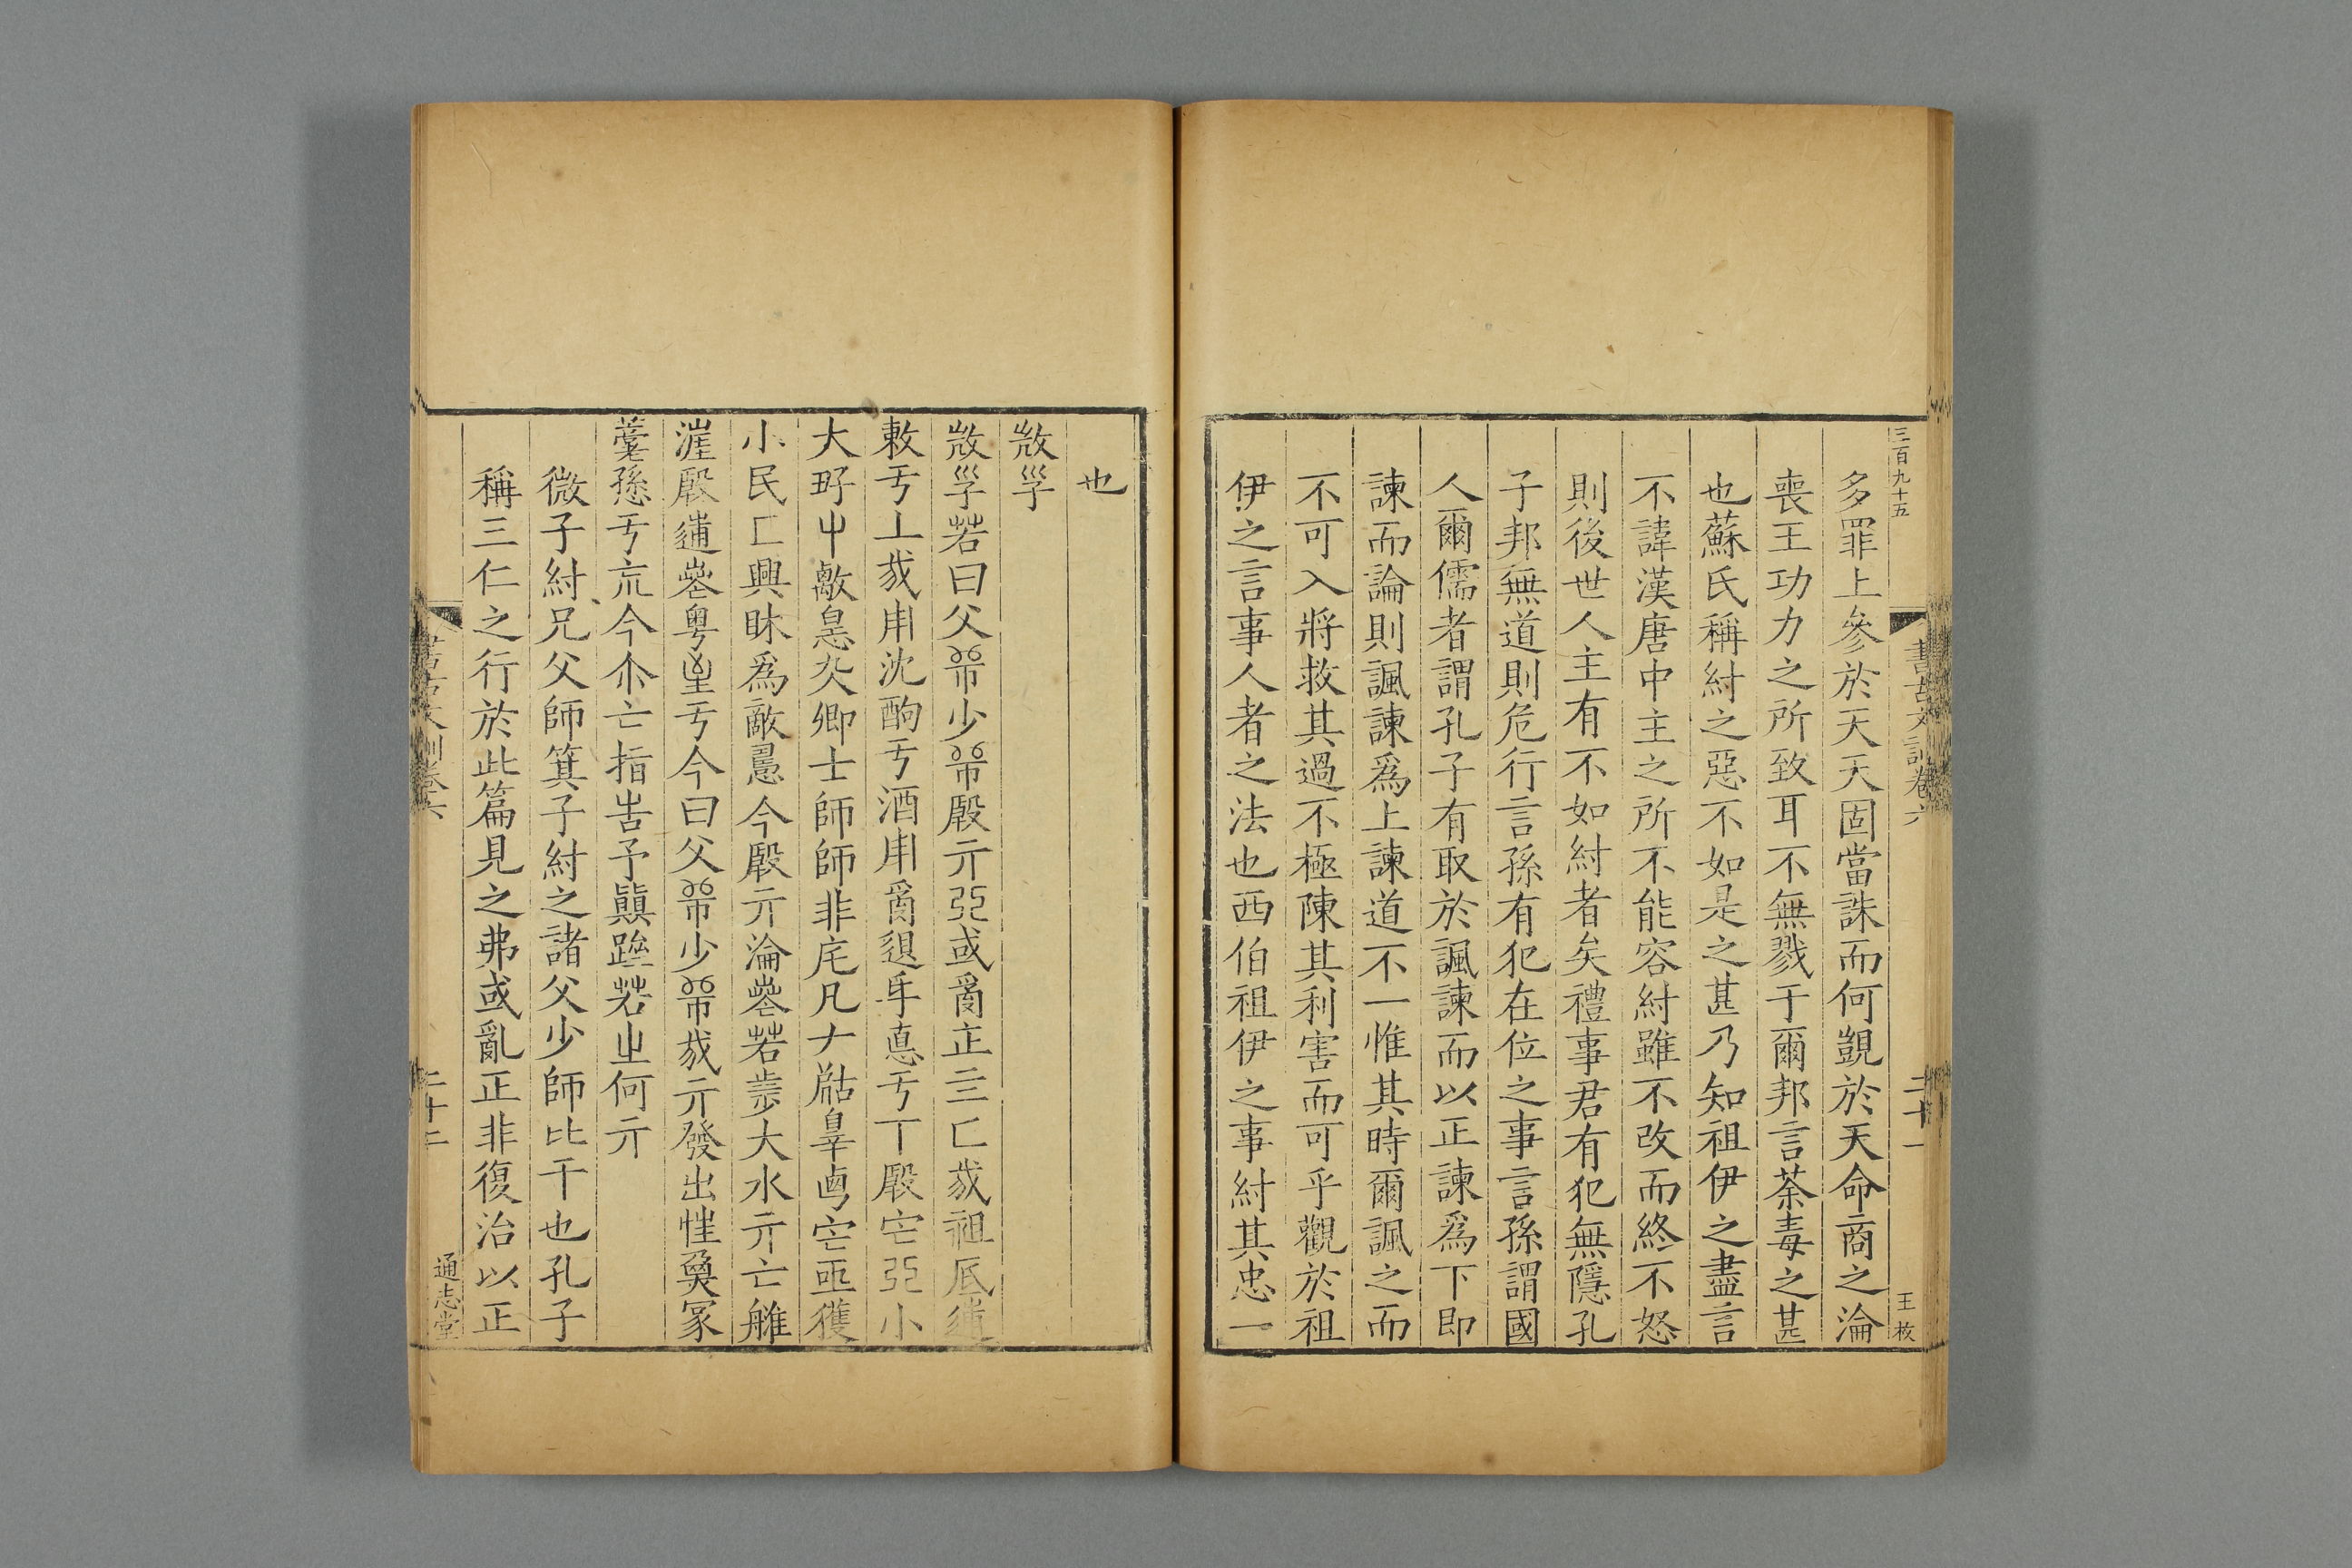 三百九十五
書古文訓卷六
二十一
王枚
多罪上參於天天固當誅而何覬於天命商之淪
喪王功力之所致耳不無戮于爾邦言荼毒之甚
也蘇氏稱紂之惡不如是之甚乃知祖伊之盡言
不諱漢唐中主之所不能容紂雖不改而終不怒
則後世人主有不如紂者矣禮事君有犯無隱孔
子邦無道則危行言孫有犯在位之事言孫謂國
人爾儒者謂孔子有取於諷諫而以正諫爲下即
諫而論則諷諫爲上諫道不一惟其時爾諷之而
不可入將救其過不極陳其利害而可乎觀於祖
伊之言事人者之法也西伯祖伊之事紂其忠一
也
𢼸𡥜
𢼸𡥜若曰父𠂤少𠂤殷亓弜或𤔔正亖匚𢦓祖厎遀
敕亏丄𢦓用沈酗亏酒用𤔔退手悳亏丅殷宅弜小
大𡥃屮敽皇宄卿士師師非庀凡ナ𦤎辠𠧟宅亟獲
小民匚興眛爲敵讎今殷亓淪𡘲若步大水亓亡雝
涯殷遀𡘲粤㞷亏今曰父𠂤少𠂤𢦓亓發出惟奠冢
𦽕孫亏㡯今尒亡指吿予顚躋若㞢何亓
微子紂兄父師箕子紂之諸父少師比干也孔子
稱三仁之行於此篇見之弗或亂正非復治以正
二十二
通志堂